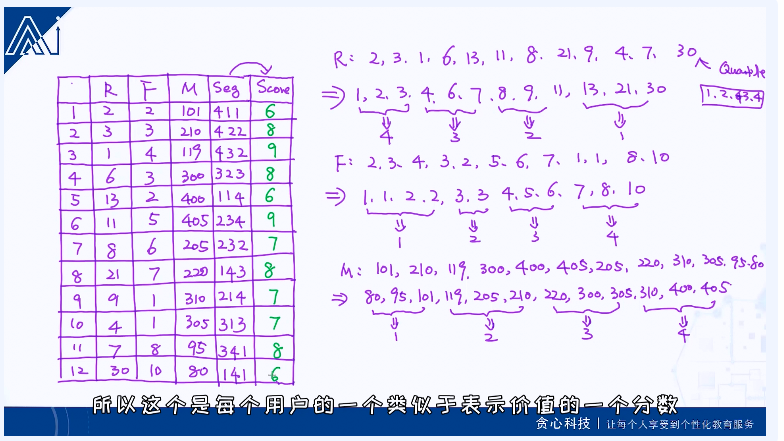 R: 2, 3. 1, 6, 13, 11, 8. 21, 9, 4, 7, 30
Quantile
1, 2, 3, 4, 6, 7, 8, 9, 11, 13, 21, 30
4 3 2 1
F: 2, 3, 4, 3, 2, 5, 6, 7, 1, 1, 8, 10
⇒ 1, 1, 2, 2, 3, 3 4, 5, 6, 7, 8, 10
1 2 3 4
M: 101, 210, 119, 300, 400, 405, 205, 220, 310, 305, 95, 80
⇒ 80, 95, 101, 119, 205, 210, 220, 300, 305, 310, 400, 405
1 2 3 4
R F M Seg Score
1 2 2 101 411 6
2 3 3 210 422 8
3 1 4 119 432 9
4 6 3 300 323 8
5 13 2 400 114 6
6 11 5 405 234 9
7 8 6 205 232 7
8 21 7 220 143 8
9 9 1 310 214 7
10 4 1 305 313 7
11 7 8 95 341 8
12 30 10 80 141 6
所以这个是每个用户的一个类似于表示价值的一个分数
贪心科技 | 让每个人享受到个性化教育服务